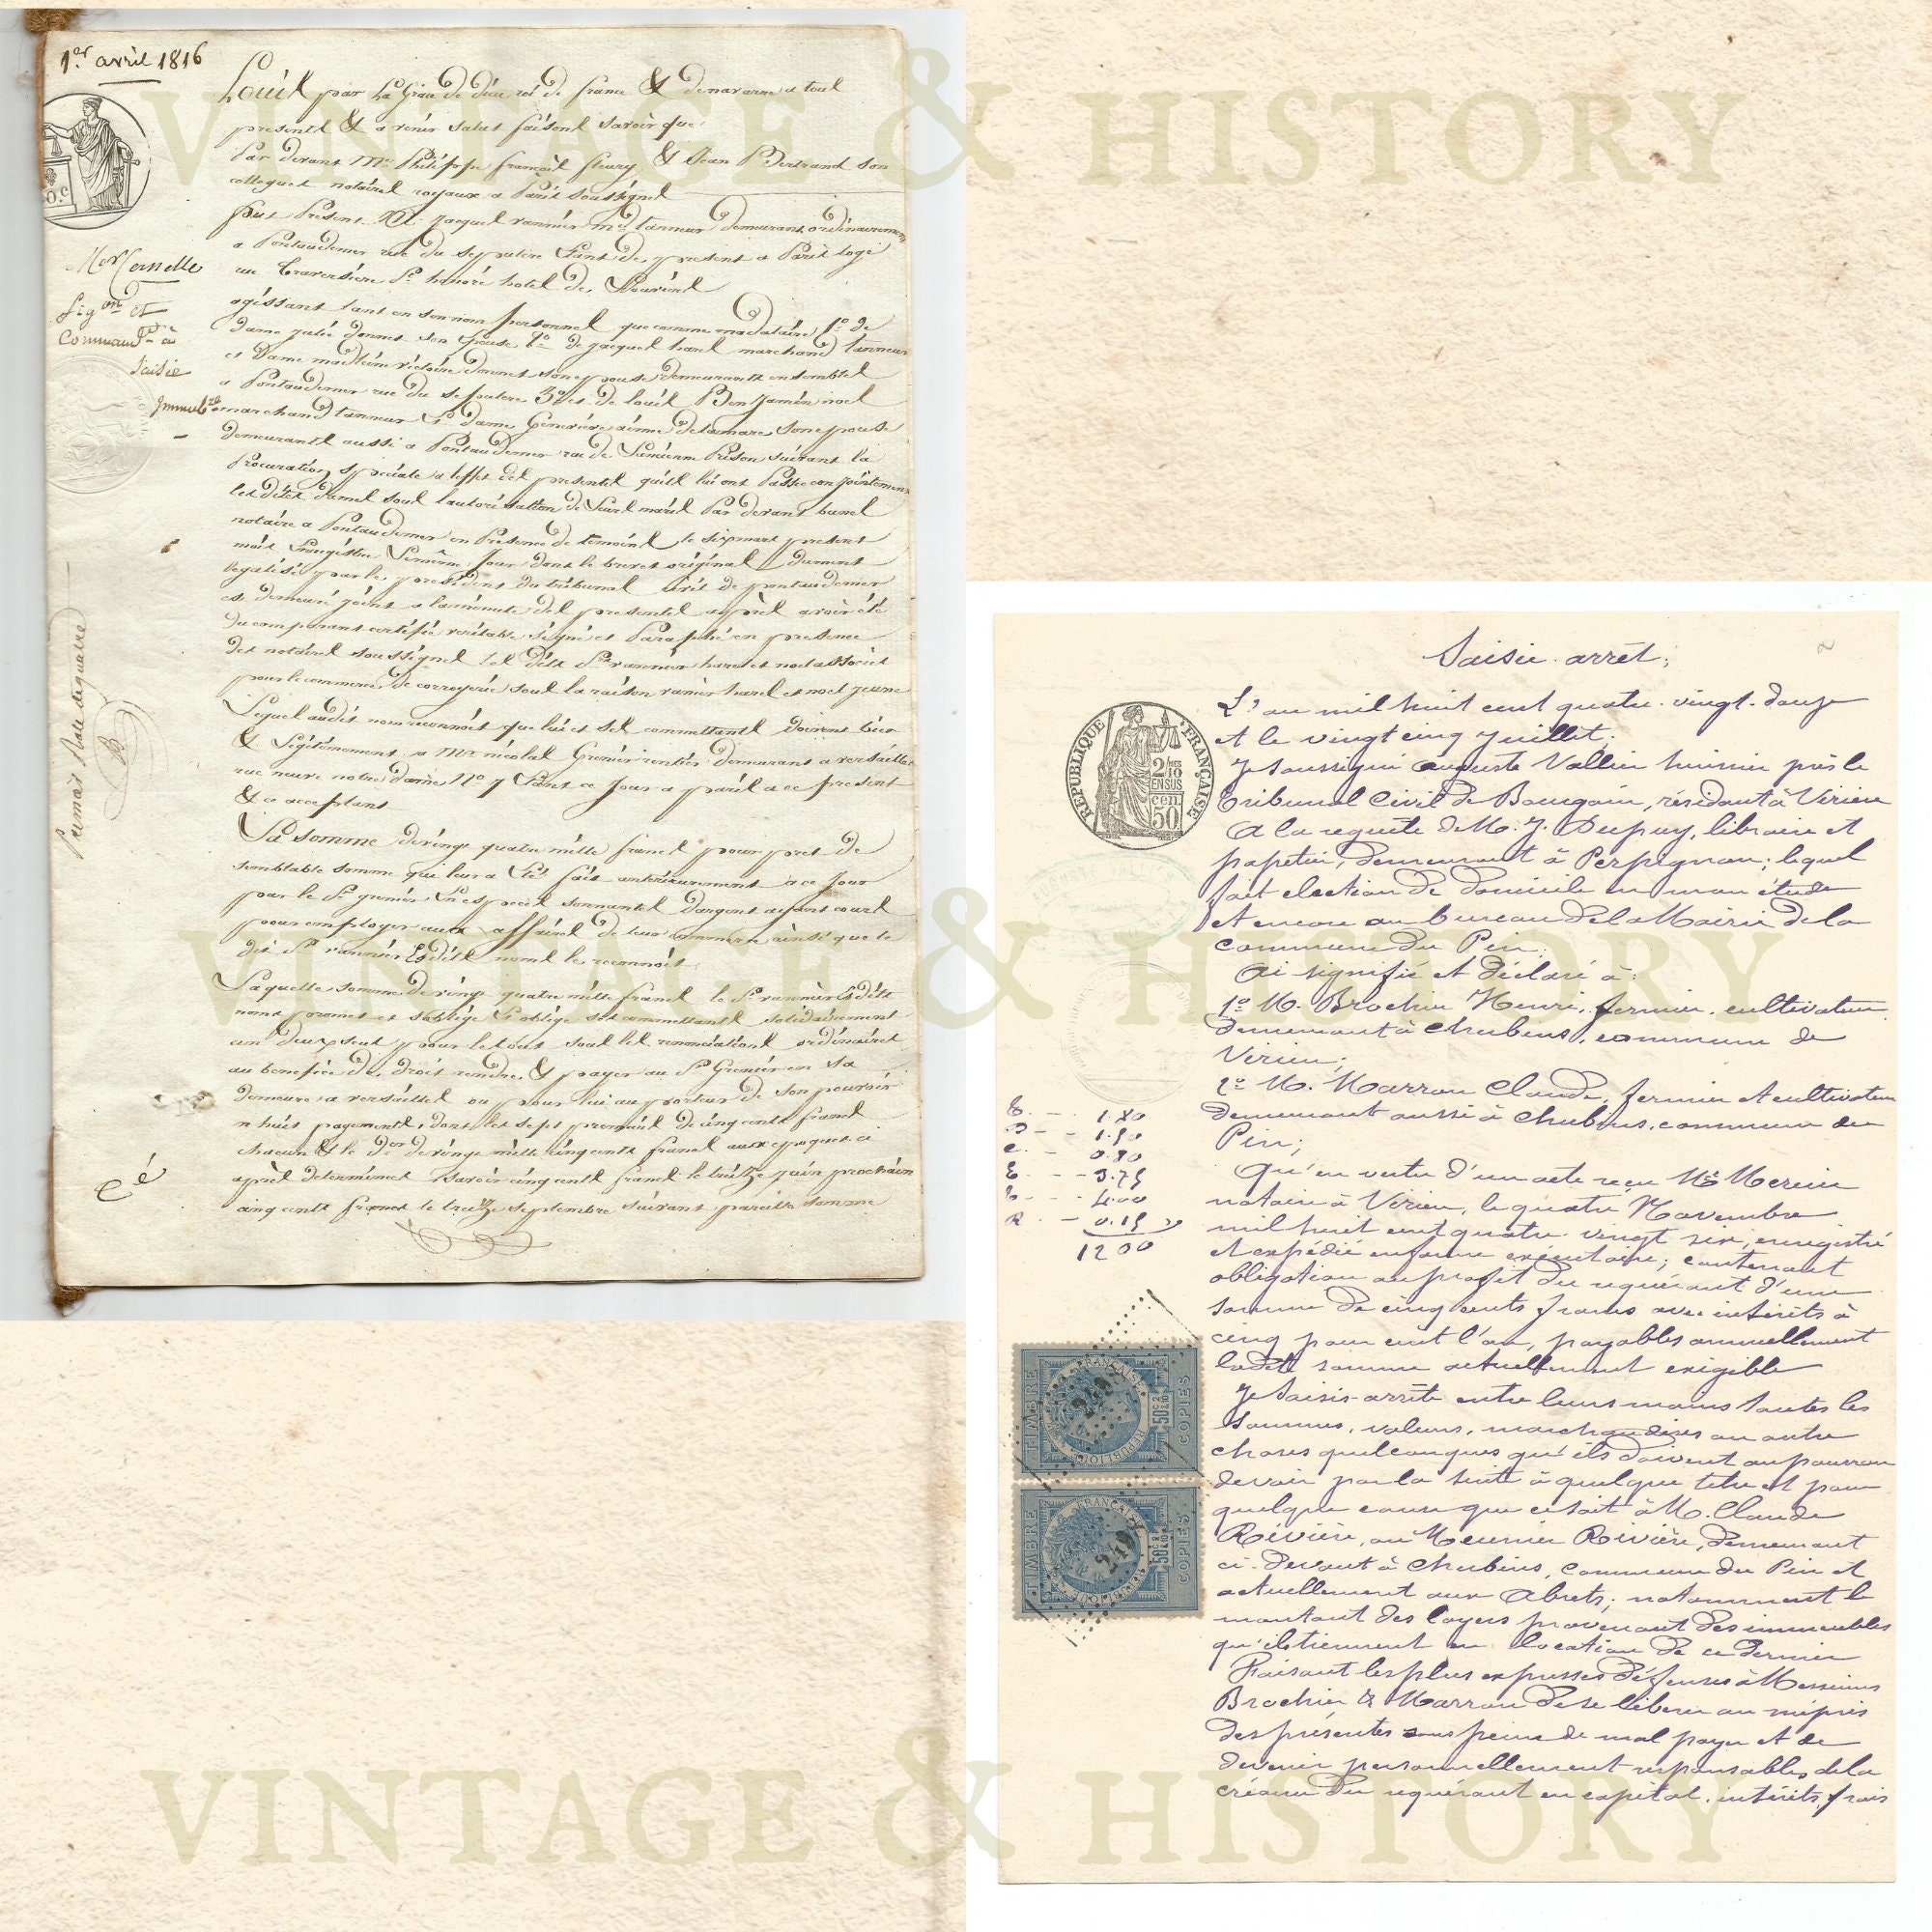 VINTAGE & HISTORY
1er avril 1816
Louis par La Grace de dieu roi de france & denavarre a tous
presents & a venir salut faisons savoir que
Par devant Me Philippe françois fleury & Jean Bertrand son
collegues notaires royaux a Paris soussignés
fut Present M. jacques vannier md tanneur demeurant ordinairement
a Pontaudemer rue du sepulcre Etant de present a Paris logé
rue traversiere St honoré hotel de
agissant tant en son nom personnel que comme mandataire 1o de
dame julie son Epouse 2o de jacques harel marchand tanneur
et Dame victoire son epouse demeurants ensembles
a Pontaudemer rue du sepulcre 3o et de louis Benjamin noel
marchand tanneur & dame Genevieve aimée delamare son epouse
demeurants aussi a Pontaudemer rue de Lancienne Prison suivant la
Procuration speciale a leffet des presentes quils lui ont Passée conjointement
les dites dames sous lautorisation de Leurs maris Par devant
notaire a Pontaudemer en Presence de temoins le six mars present
mois Enregistré Lememe Jour dont le brevet original dument
legalisé par le president du tribunal civil de pontaudemer
est demeuré joint a laminute des presentes apres avoir été
du comparant certifié veritable signé et Paraphé en presence
des notaires soussignés les dits Srs vannier harel et noel associés
pour le commerce de corroyerie sous la raison vannier harel et noel jeune
Lequel audit nom reconnoit que lui et ses commettants doivent bien
& Legitimement a Mr nicolas Grenier rentier demeurant a versailles
rue neuve notre dame No 7 Etant ce Jour a paris a ce present
& ce acceptant
La somme de vingt quatre mille francs pour pret de
semblable somme qui leur a Eté fait anterieurement a ce Jour
par le Sr grenier En especes sonnantes dargent ayant cours
pour employer aux affaires de leur commerce ainsi que le
dit Sr vannier Esdits noms le reconnoit
Laquelle somme de vingt quatre mille francs le Sr vannier Esdits
noms promet et soblige & oblige ses commettants solidairement
un deux seul pour le tout sous les renonciations ordinaires
au benefice de droit rendre & payer au Sr Grenier en sa
demeure a versailles ou pour lui au porteur de son pouvoir
n huit payements, dont les sept premiers de cinq cents francs
chacun & le der de vingt mille cinq cents francs aux epoques ci
après determinées savoir cinq cents francs le treize juin prochain
cinq cents francs le treize septembre suivant pareille somme
Saisie
VINTAGE & HISTORY
Saisie-arrêt;
RÉPUBLIQUE FRANÇAISE
2/10 EN SUS
50 cen
L'an mil huit cent quatre-vingt-douze
et le vingt cinq Juillet;
Je soussigné Auguste Vallin huissier près le
Tribunal Civil de Bourgoin, résidant à Virieu
A la requête de M. J. Dupuy, libraire et
papetier, demeurant à Perpignan; lequel
fait élection de domicile en mon étude
et encore au bureau de la Mairie de la
commune du Pin;
Ai signifié et déclaré à:
1o M. Brochier Henri, fermier, cultivateur
demeurant à Chubins, commune de
Virieu;
2o M. Marron Claude, fermier et cultivateur
demeurant aussi à Chubins, commune du
Pin;
1.80
1.50
0.80
3.75
4.00
0.15
12 00
Qu'en vertu d'un acte reçu Me Mercier
notaire à Virieu, le quatre Novembre
mil huit cent quatre-vingt six, enregistré
et expédié en forme exécutoire; contenant
obligation au profit du requérant d'une
somme de cinq cents francs avec intérêts à
cinq pour cent l'an, payables annuellement
ladite somme actuellement exigible
Je saisis-arrête entre leurs mains toutes les
sommes, valeurs, marchandises ou autre
choses quelconques qu'ils doivent ou pourront
devoir par la suite à quelque titre et pour
quelque cause que ce soit à M. Claude
Rivière, ou Meunier Rivière, demeurant
ci-devant à Chubins, commune du Pin et
actuellement aux Abrets; notamment le
montant des loyers provenant des immeubles
qu'ils tiennent en location de ce dernier
Faisant les plus expresses défenses à Messieurs
Brochier & Marron de se libérer au mépris
des présentes sous peine de mal payer et de
devenir personnellement responsables de la
créance du requérant en capital, intérêts, frais
TIMBRE
COPIES
RÉPUBLIQUE FRANÇAISE
TIMBRE
COPIES
RÉPUBLIQUE FRANÇAISE
VINTAGE & HISTORY